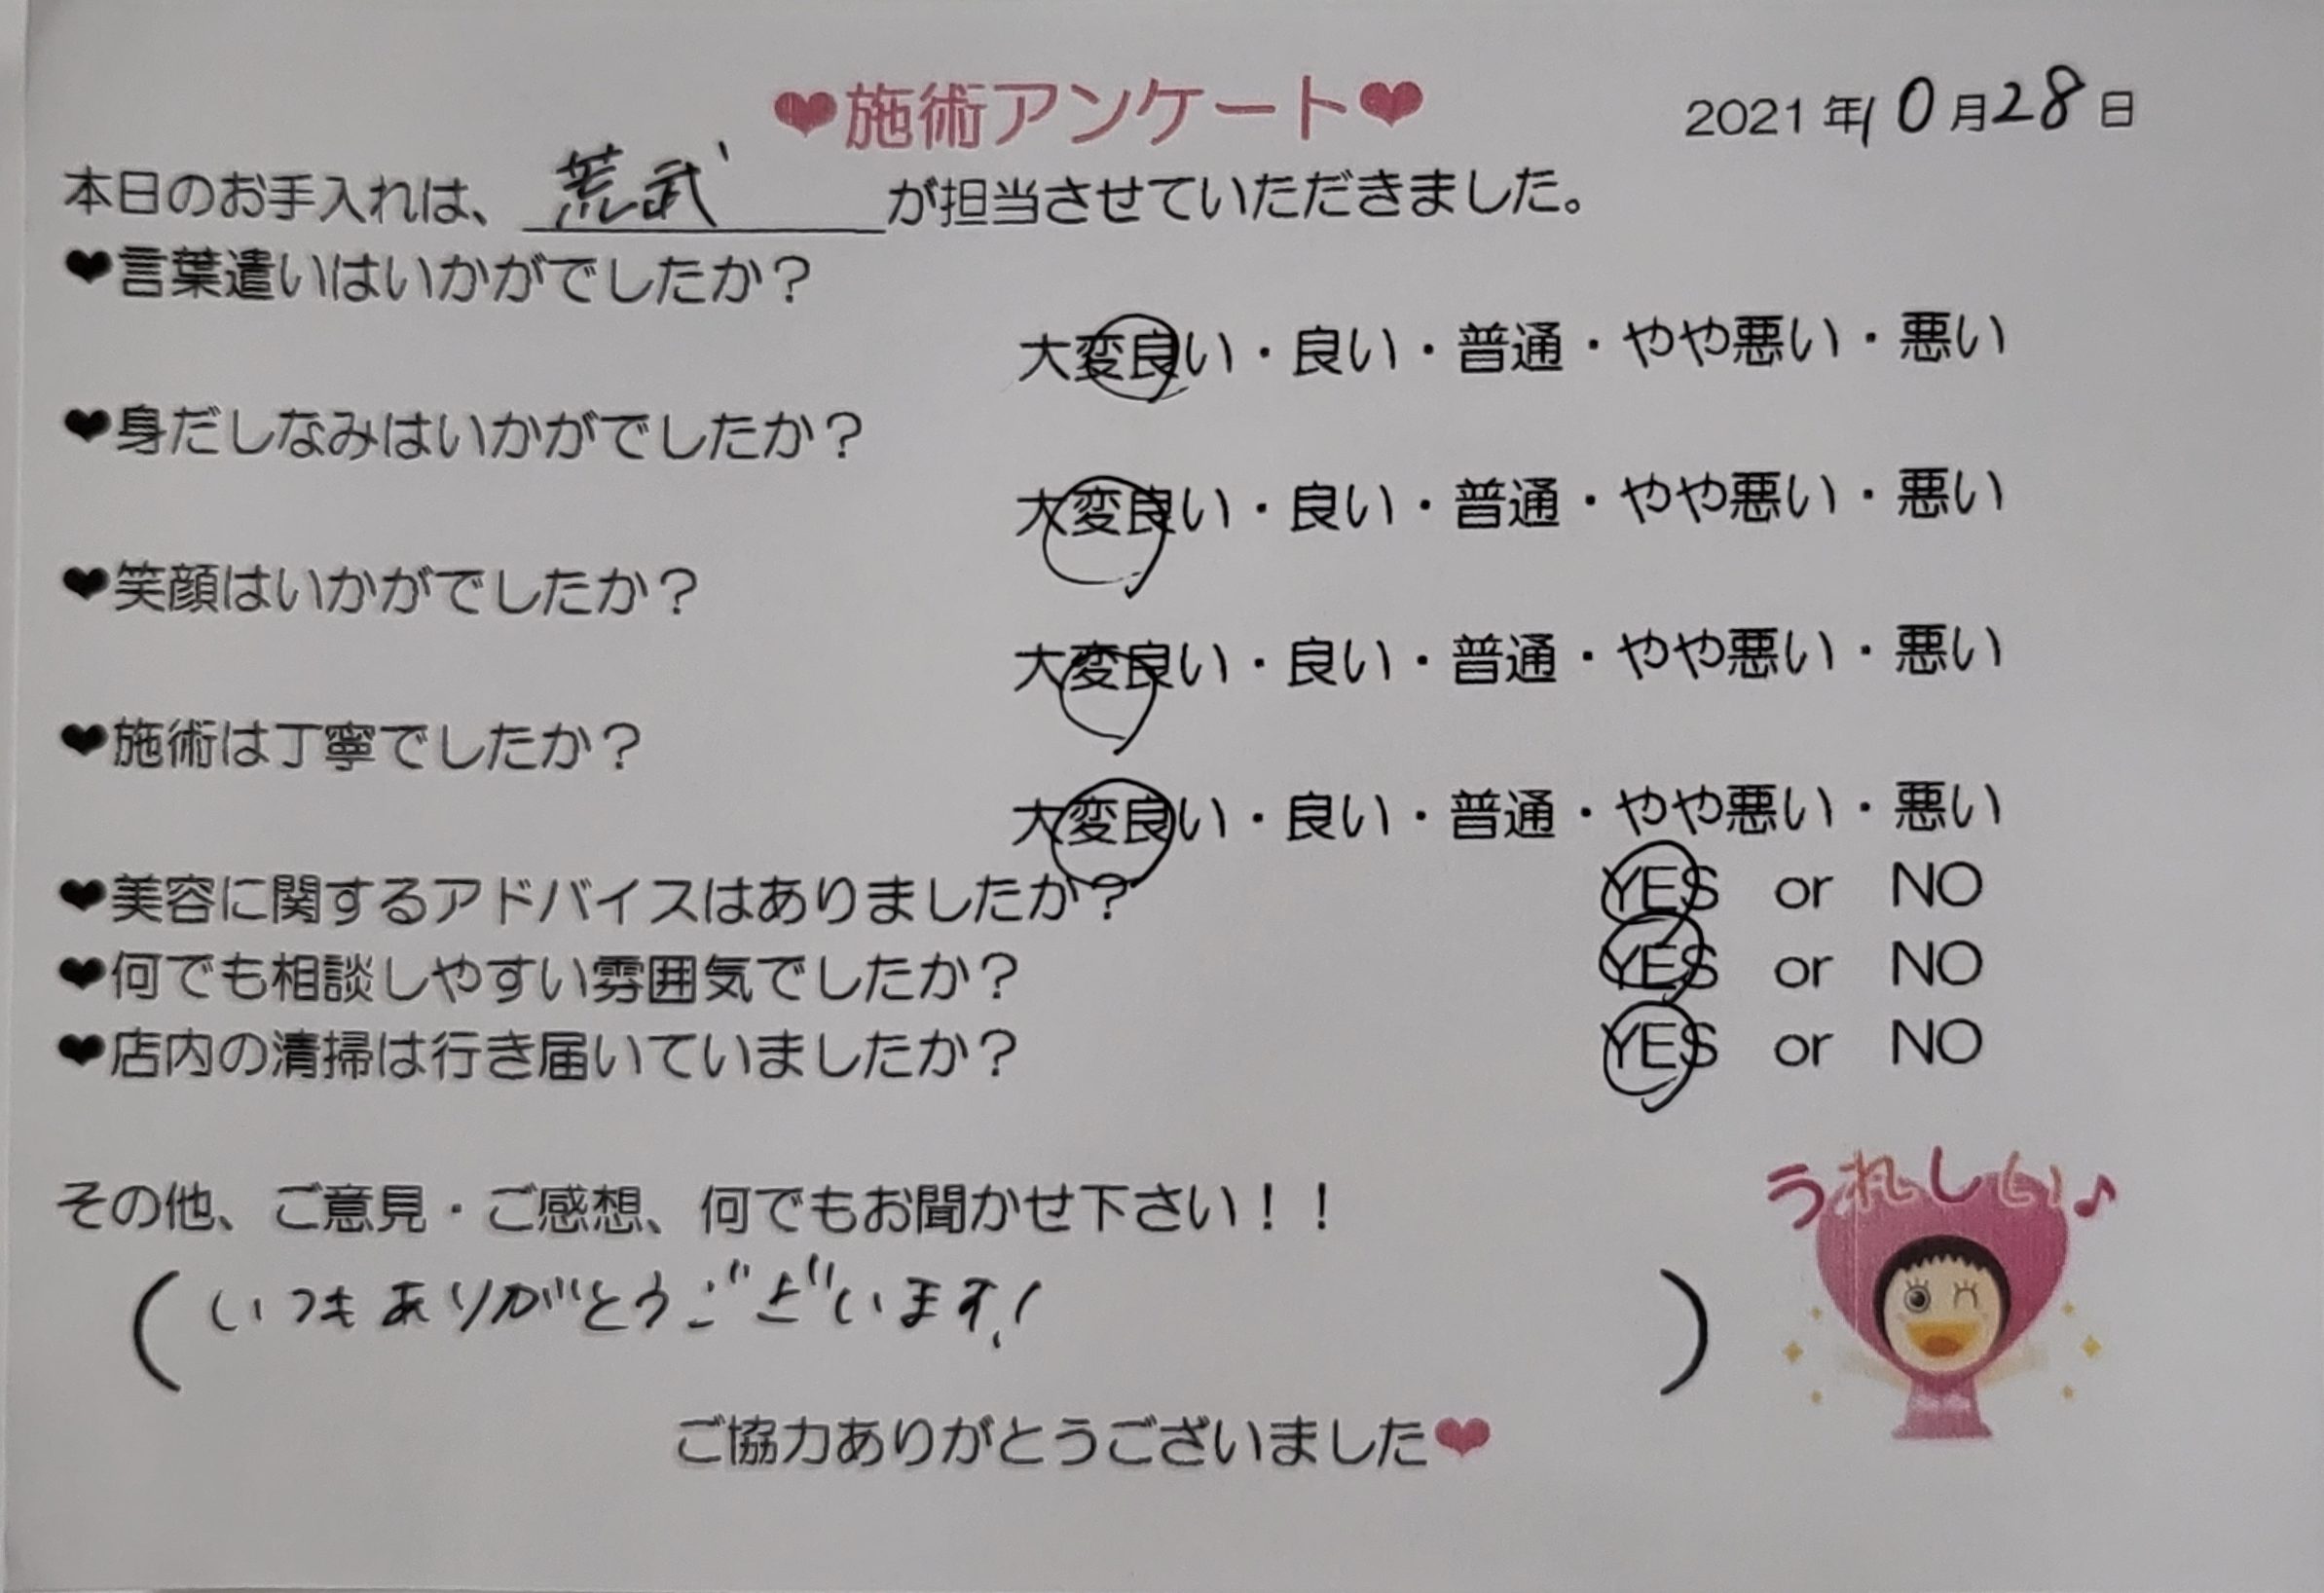 ❤施術アンケート❤
2021年10月28日
本日のお手入れは、荒武が担当させていただきました。
❤言葉遣いはいかがでしたか？
大変良い・良い・普通・やや悪い・悪い
❤身だしなみはいかがでしたか？
大変良い・良い・普通・やや悪い・悪い
❤笑顔はいかがでしたか？
大変良い・良い・普通・やや悪い・悪い
❤施術は丁寧でしたか？
大変良い・良い・普通・やや悪い・悪い
❤美容に関するアドバイスはありましたか？ YES or NO
❤何でも相談しやすい雰囲気でしたか？ YES or NO
❤店内の清掃は行き届いていましたか？ YES or NO
その他、ご意見・ご感想、何でもお聞かせ下さい！！
うれしい♪
（いつもありがとうございます！）
ご協力ありがとうございました❤